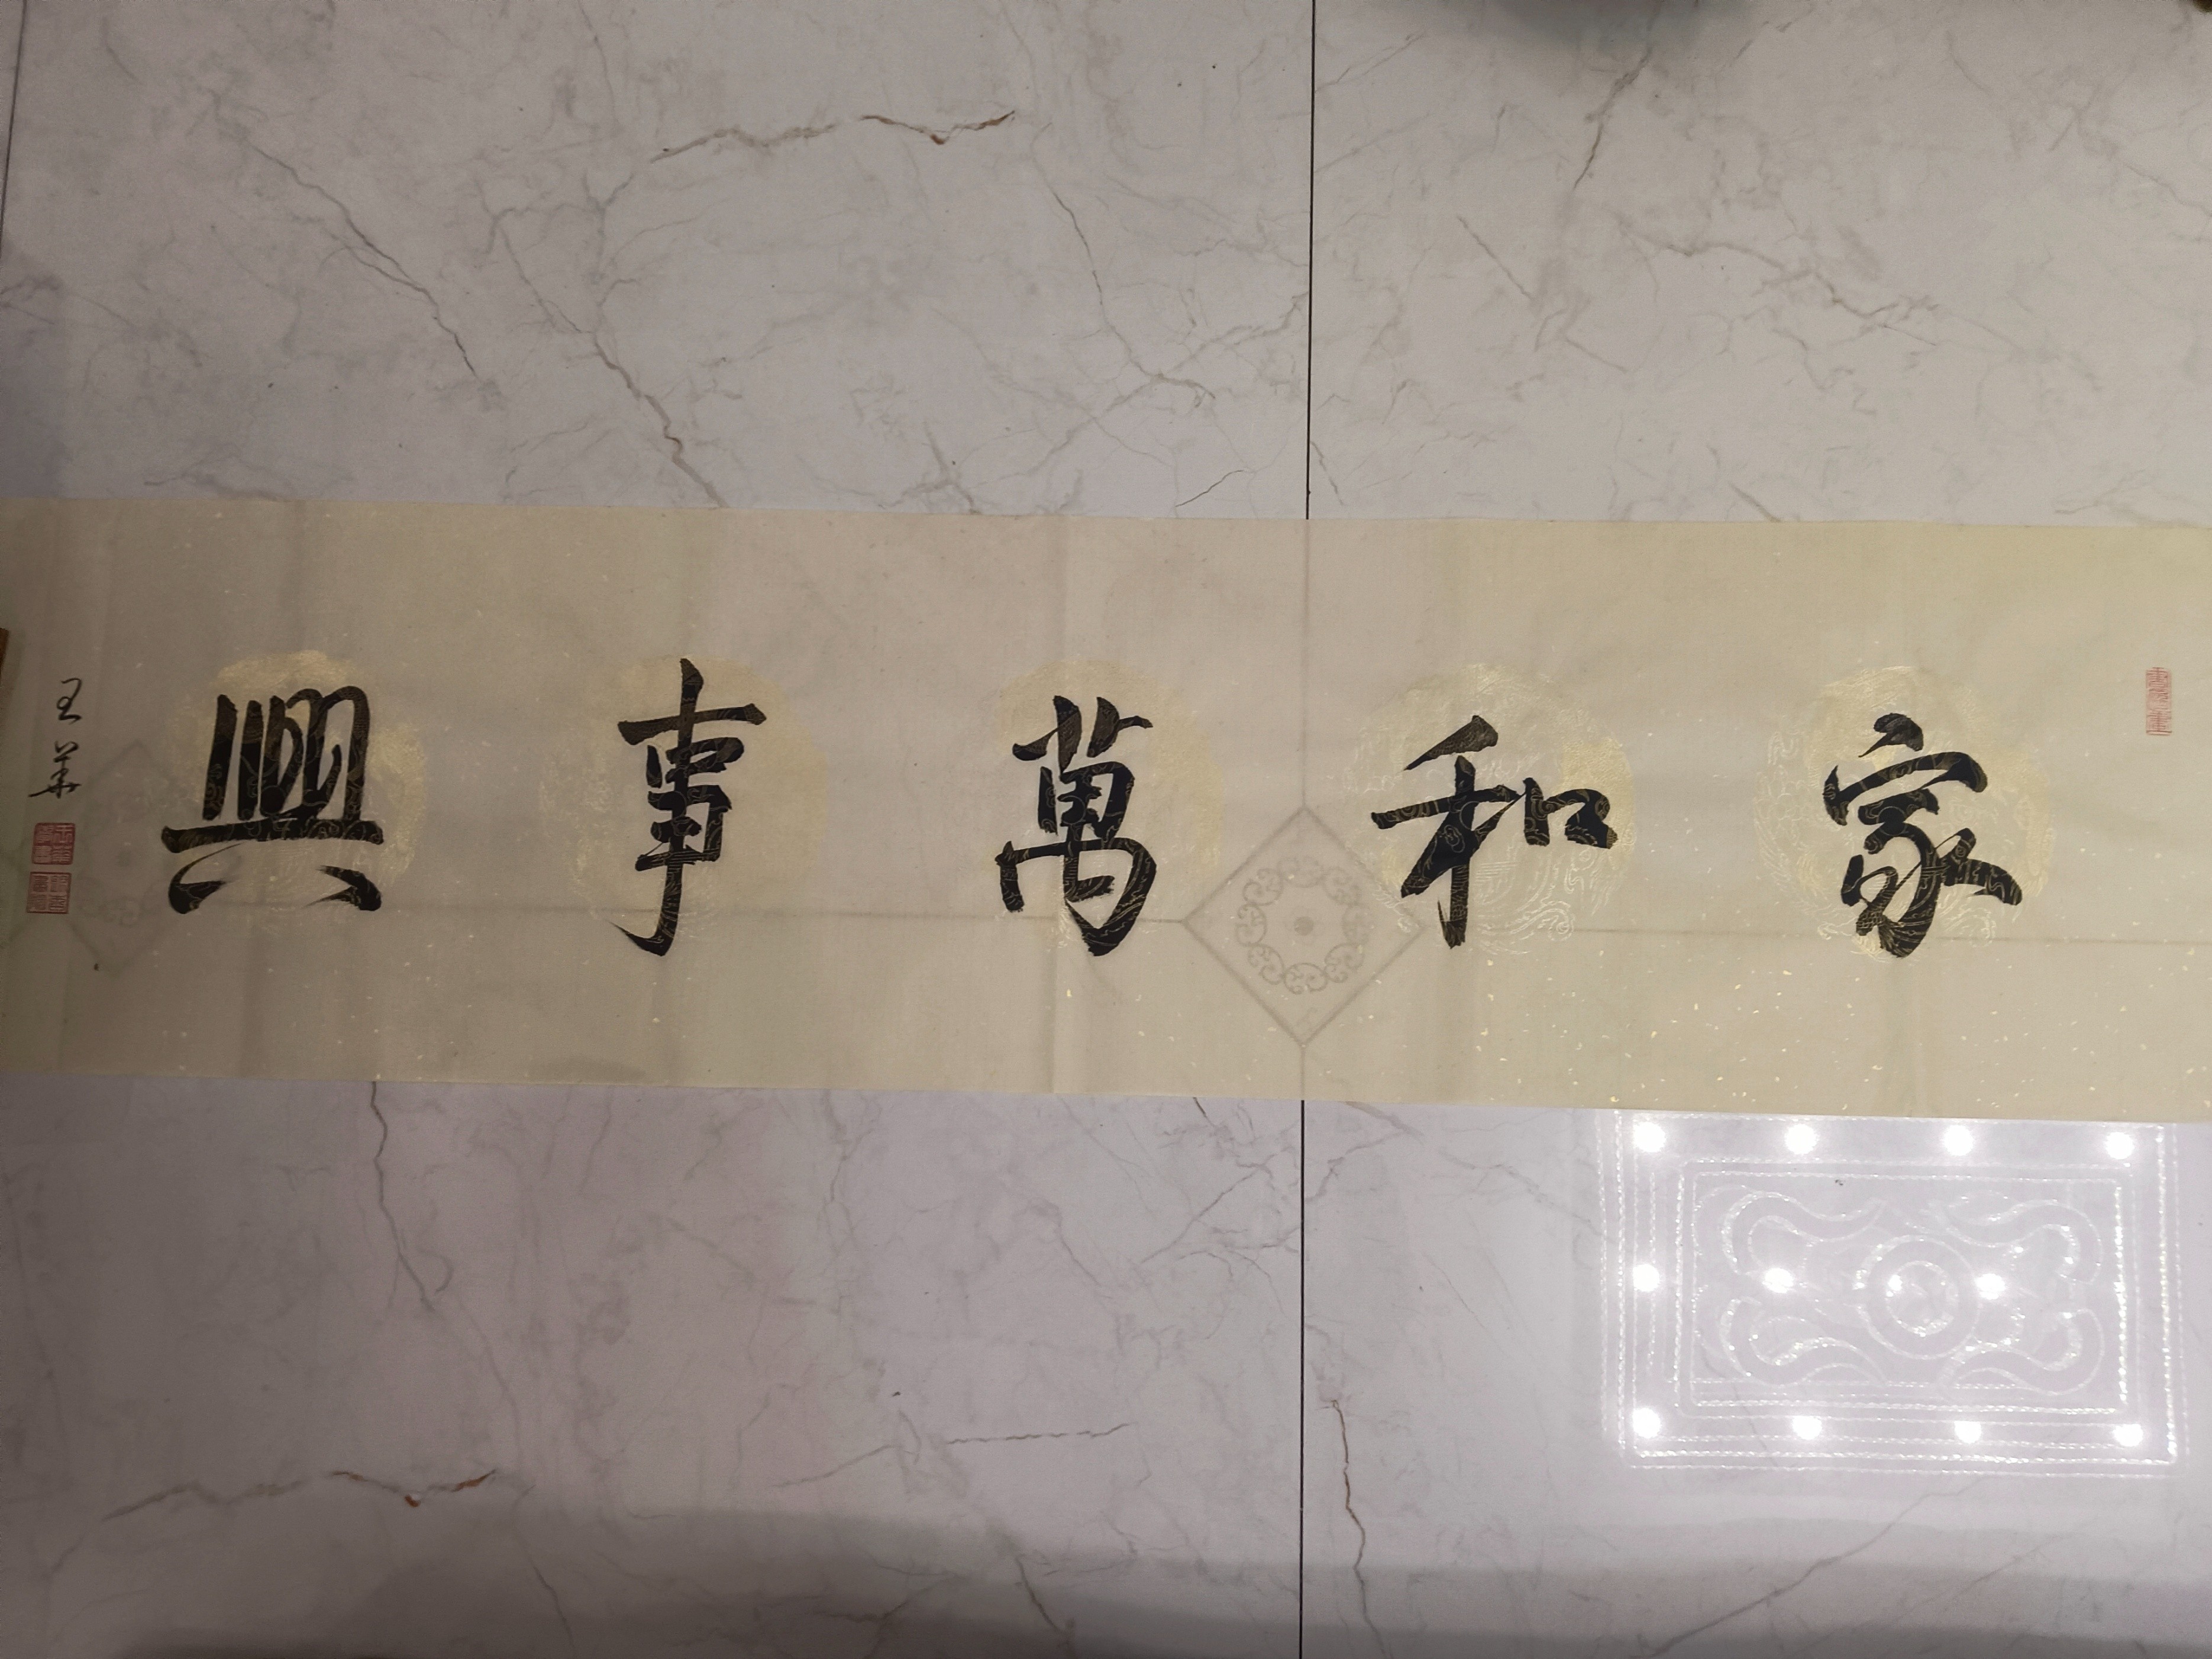 家和萬事興
王華